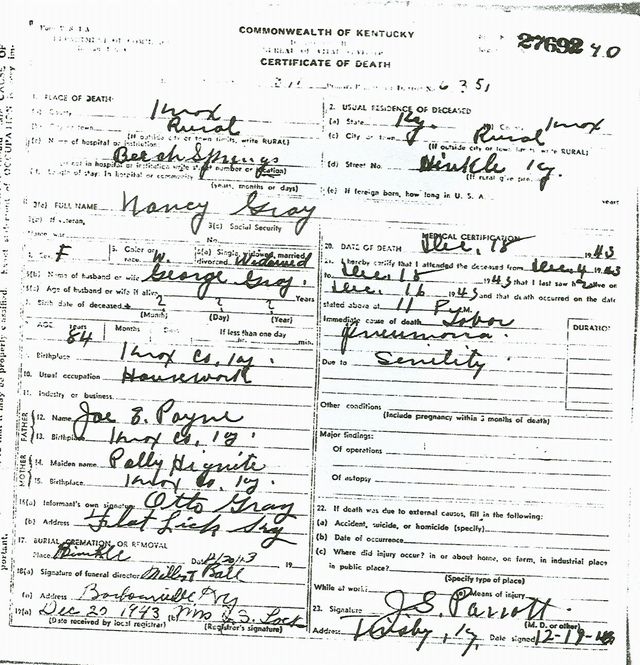 COMMONWEALTH OF KENTUCKY
27692 40
CERTIFICATE OF DEATH
6351
1. PLACE OF DEATH:
County Knox
Rural
(If outside city or town limits, write RURAL)
Name of hospital or institution:
Beech Springs
(If not in hospital or institution write street number or location)
Length of stay: In hospital or community
(years, months or days)
2. USUAL RESIDENCE OF DECEASED
(a) State Ky. County Knox
(c) City or town Rural
(If outside city or town limits, write RURAL)
(d) Street No. Hinkle Ky.
(If rural give
(e) If foreign born, how long in U. S. A. years
3(a) FULL NAME Nancy Gray
If veteran, 3(c) Social Security
No.
Sex F 5. Color or race W. 6(a) Single, widowed, married, divorced Widowed
(b) Name of husband or wife George Gray.
(c) Age of husband or wife if alive Years
Birth date of deceased ? ? ?
(Month) (Day) (Year)
AGE 84 Years Months Days If less than one day min.
Birthplace Knox Co. Ky.
10. Usual occupation Housework
11. Industry or business
FATHER
12. Name Joe Z. Payne
13. Birthplace Knox Co. Ky.
MOTHER
14. Maiden name Polly Hignite
15. Birthplace Knox Co. Ky.
16(a) Informant's own signature Otto Gray
(b) Address Flat Lick Ky
17. BURIAL, CREMATION OR REMOVAL
Place Hinkle Date 12/20/43 19
18(a) Signature of funeral director Ball
(b) Address Barbourville Ky
19(a) Dec 27 1943 (b) Mrs
(Date received by local registrar) (Registrar's signature)
MEDICAL CERTIFICATION
20. DATE OF DEATH Dec. 18 1943
21. I hereby certify that I attended the deceased from Dec. 4 1943
to Dec. 18 1943 that I last saw h alive on
Dec. 16 1943 and that death occurred on the date
stated above at 11 P M.
DURATION
Immediate cause of death Lobar
Pneumonia.
Due to Senility
Other conditions
(Include pregnancy within 3 months of death)
Major findings:
Of operations
Of autopsy
22. If death was due to external causes, fill in the following:
(a) Accident, suicide, or homicide (specify)
(b) Date of occurrence
(c) Where did injury occur? in or about home, on farm, in industrial place
in public place?
(Specify type of place)
While at work? Means of injury
23. Signature J.S. Parrott
(M. D. or other)
Address Ky. Date signed 12-19-43